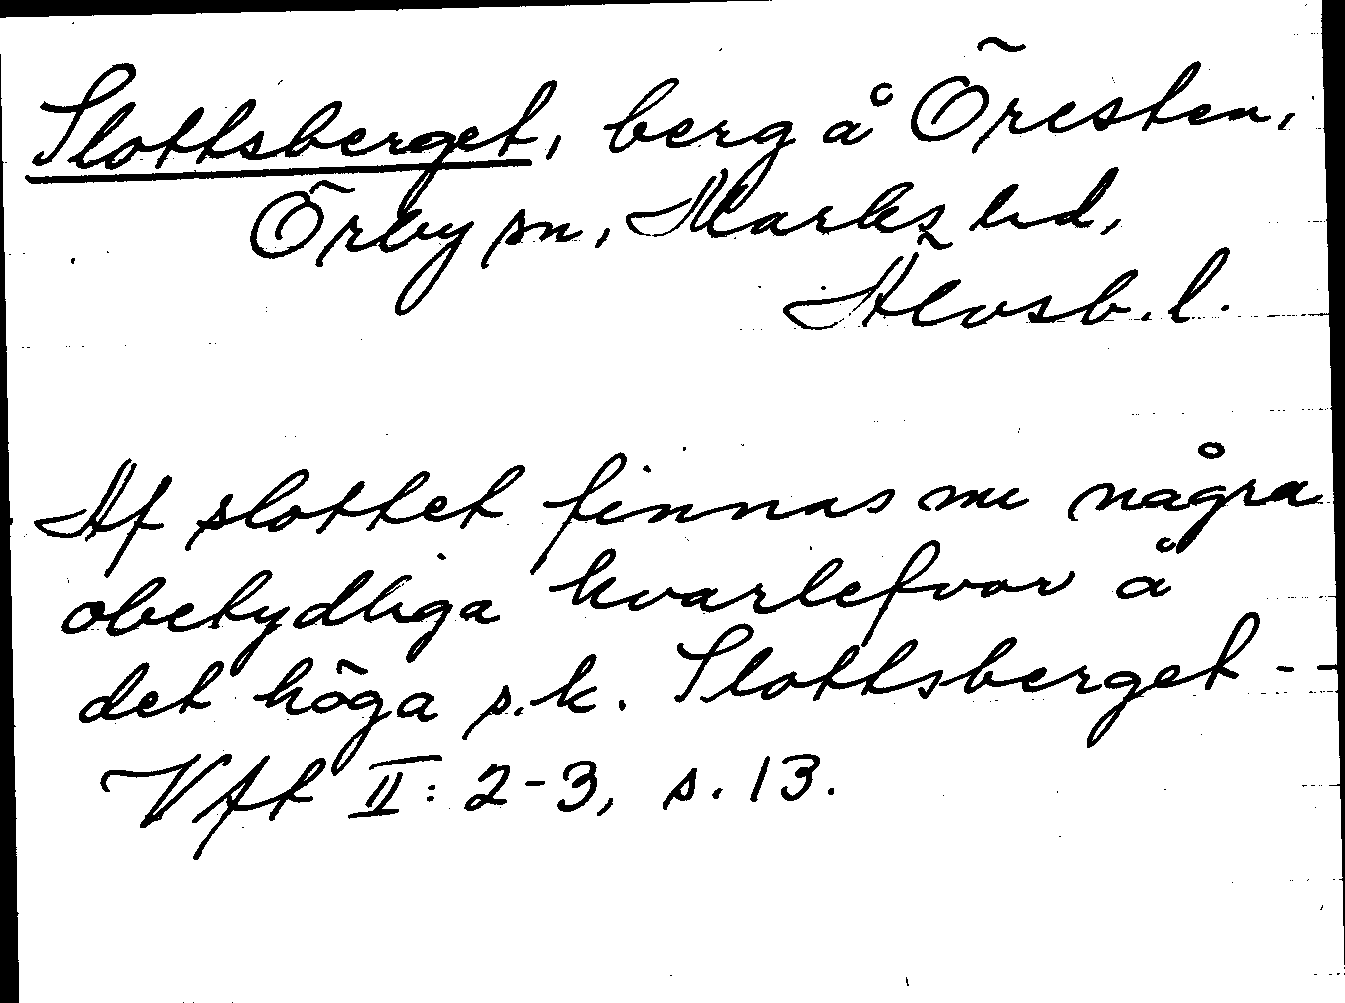 Slottsberget, berg å Öresten,
Örby sn, Marks hd,
Älvsb. l.
Af slottet finnas nu några
obetydliga kvarlefvor å
det höga s.k. Slottsberget --
Vft II: 2-3, s. 13.